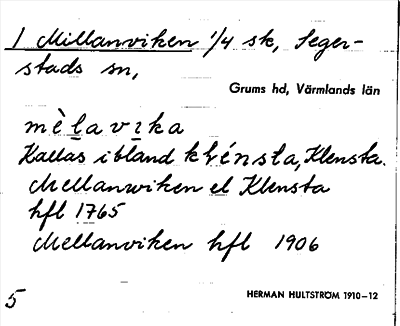 1 Millanviken 1/4 sk, Seger-
stads sn,
Grums hd, Värmlands län
mèlavika
Kallas ibland klénsta, Klensta.
Mellanwiken el Klensta
hfl 1765
Mellanviken hfl 1906
5
HERMAN HULTSTRÖM 1910-12